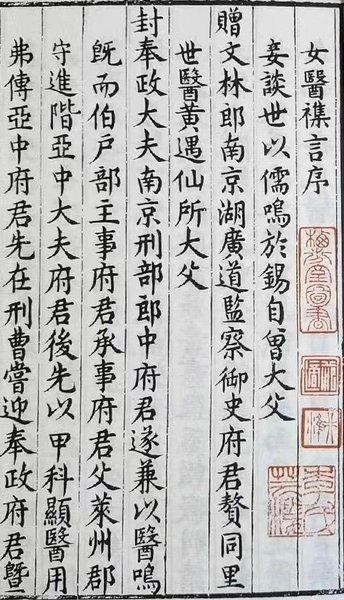 女醫襍言序
妾談世以儒鳴於錫自曾大父
贈文林郎南京湖廣道監察御史府君贅同里
世醫黃遇仙所大父
封奉政大夫南京刑部郎中府君遂兼以醫鳴
既而伯戶部主事府君承事府君父萊州郡
守進階亞中大夫府君後先以甲科顯醫用
弗傳亞中府君先在刑曹嘗迎奉政府君曁